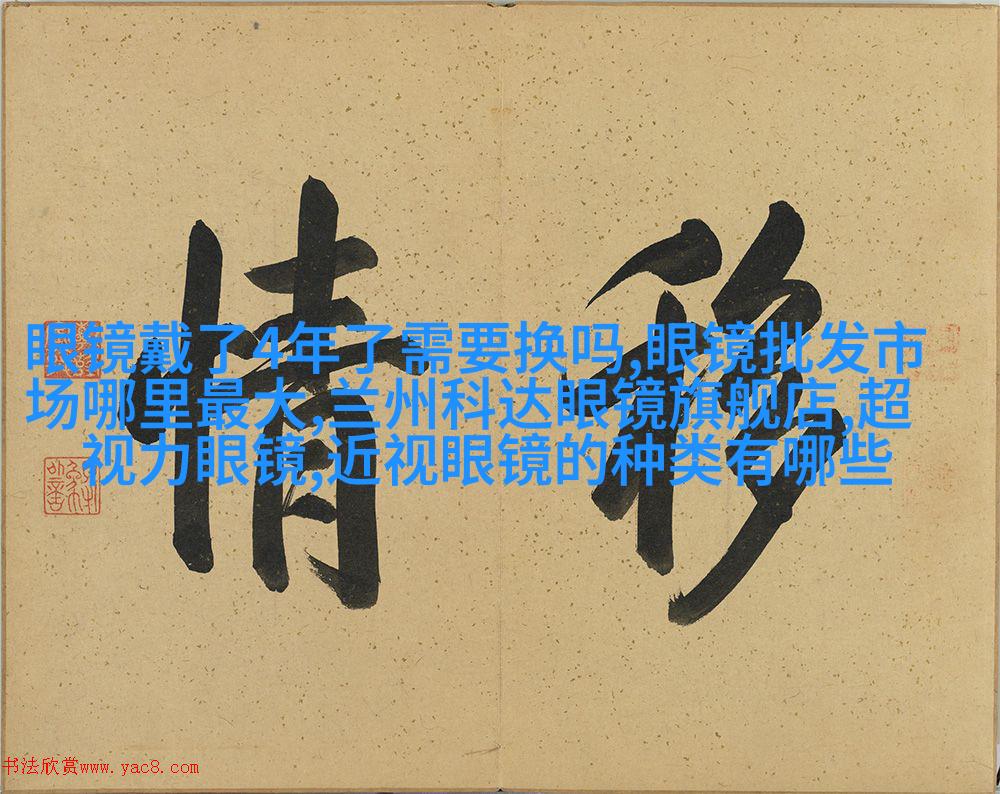 移情
眼镜戴了4年了需要换吗,眼镜批发市
场哪里最大,兰州科达眼镜旗舰店,超
视力眼镜,近视眼镜的种类有哪些
书法欣赏www.yac8.com